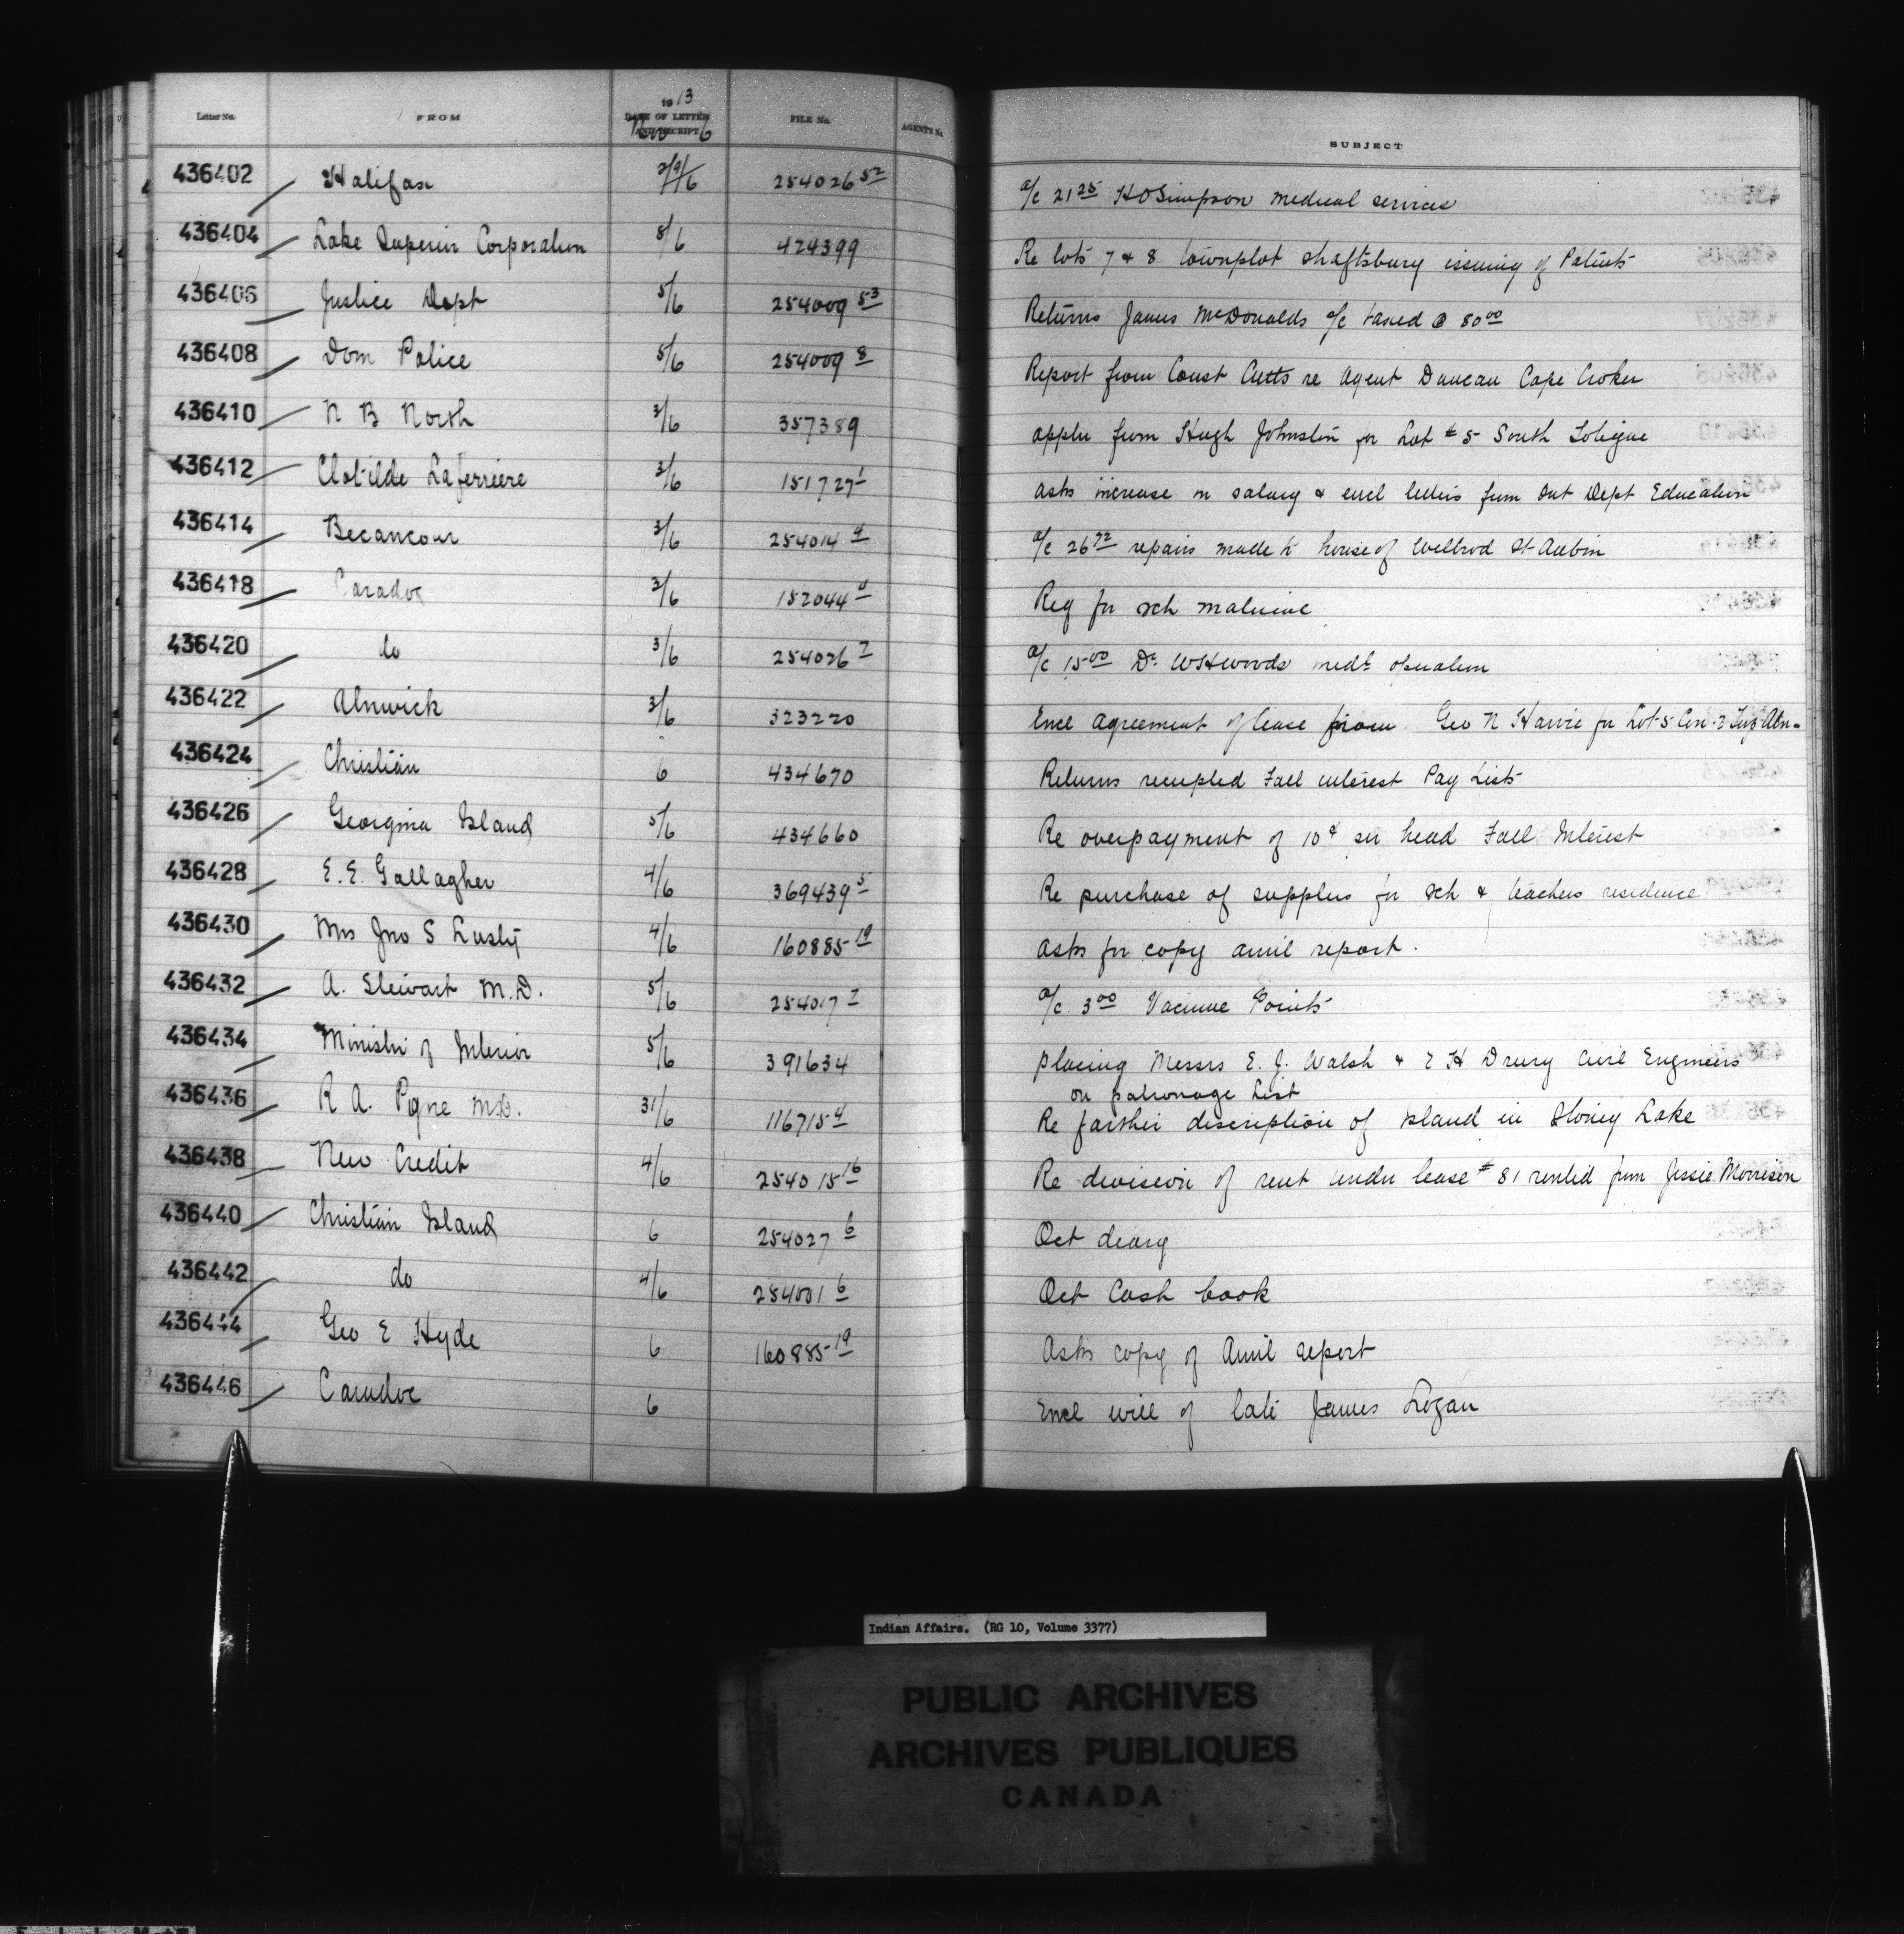 Letter No. FROM 1913 DATE OF LETTER AND RECEIPT Nov 6 FILE No. AGENT'S No. SUBJECT
436402 Halifax 254026 52 a/c 21 25 H O Simpson medical services
436404 Lake Superior Corporation 8/6 424399 Re lots 7 & 8 townplot Shaftsbury issuing of Patents
436406 Justice Dept 5/6 254009 53 Returns James McDonalds a/c taxed @ 80 00
436408 Dom Police 5/6 254009 8 Report from Const Cutts re Agent Duncan Cape Croker
436410 N B North 3/6 357389 appln from Hugh Johnston for Lot # 5 South Tobique
436412 Clotilde Laferriere 3/6 151727 1 asks increase in salary & encl letters from Ont Dept Education
436414 Becancour 3/6 254014 4 a/c 26 72 repairs made to house of Wilbrod St Aubin
436418 Caradoc 3/6 152044 4 Req for sch
436420 do 3/6 254026 7 a/c 15 00 Dr W H Woods medl operation
436422 Alnwick 3/6 323220 Encl agreement of lease from Geo N Harvie for Lot 5 Con 2 Twp Aln-
436424 Christian 6 434670 Returns receipted Fall interest Pay Lists
436426 Georgina Island 5/6 434660 Re overpayment of 10¢ per head Fall Interest
436428 E. E. Gallagher 4/6 369439 5 Re purchase of supplies for sch & teachers residence
436430 Mrs Jno S Lusty 4/6 160885 19 asks for copy annl report.
436432 A. Stewart M.D. 5/6 254017 7 a/c 3 00 Vaccine Points
436434 Ministr of Interior 5/6 391634 placing Messrs E. J. Walsh & E H Drury Civil Engineers
on patronage List
436436 R A. Pyne M.D. 31/6 116715 4 Re farther discription of Island in Stoney Lake
436438 New Credit 4/6 254015 16 Re division of rent under lease # 81 rented from Jessie Morrison
436440 Christian Island 6 254027 6 Oct diary
436442 do 4/6 254001 6 Oct Cash book
436444 Geo E Hyde 6 160885 19 Asks copy of Annl report
436446 Caradoc 6 Encl will of late James Logan
Indian Affairs. (RG 10, Volume 3377)
PUBLIC ARCHIVES
ARCHIVES PUBLIQUES
CANADA